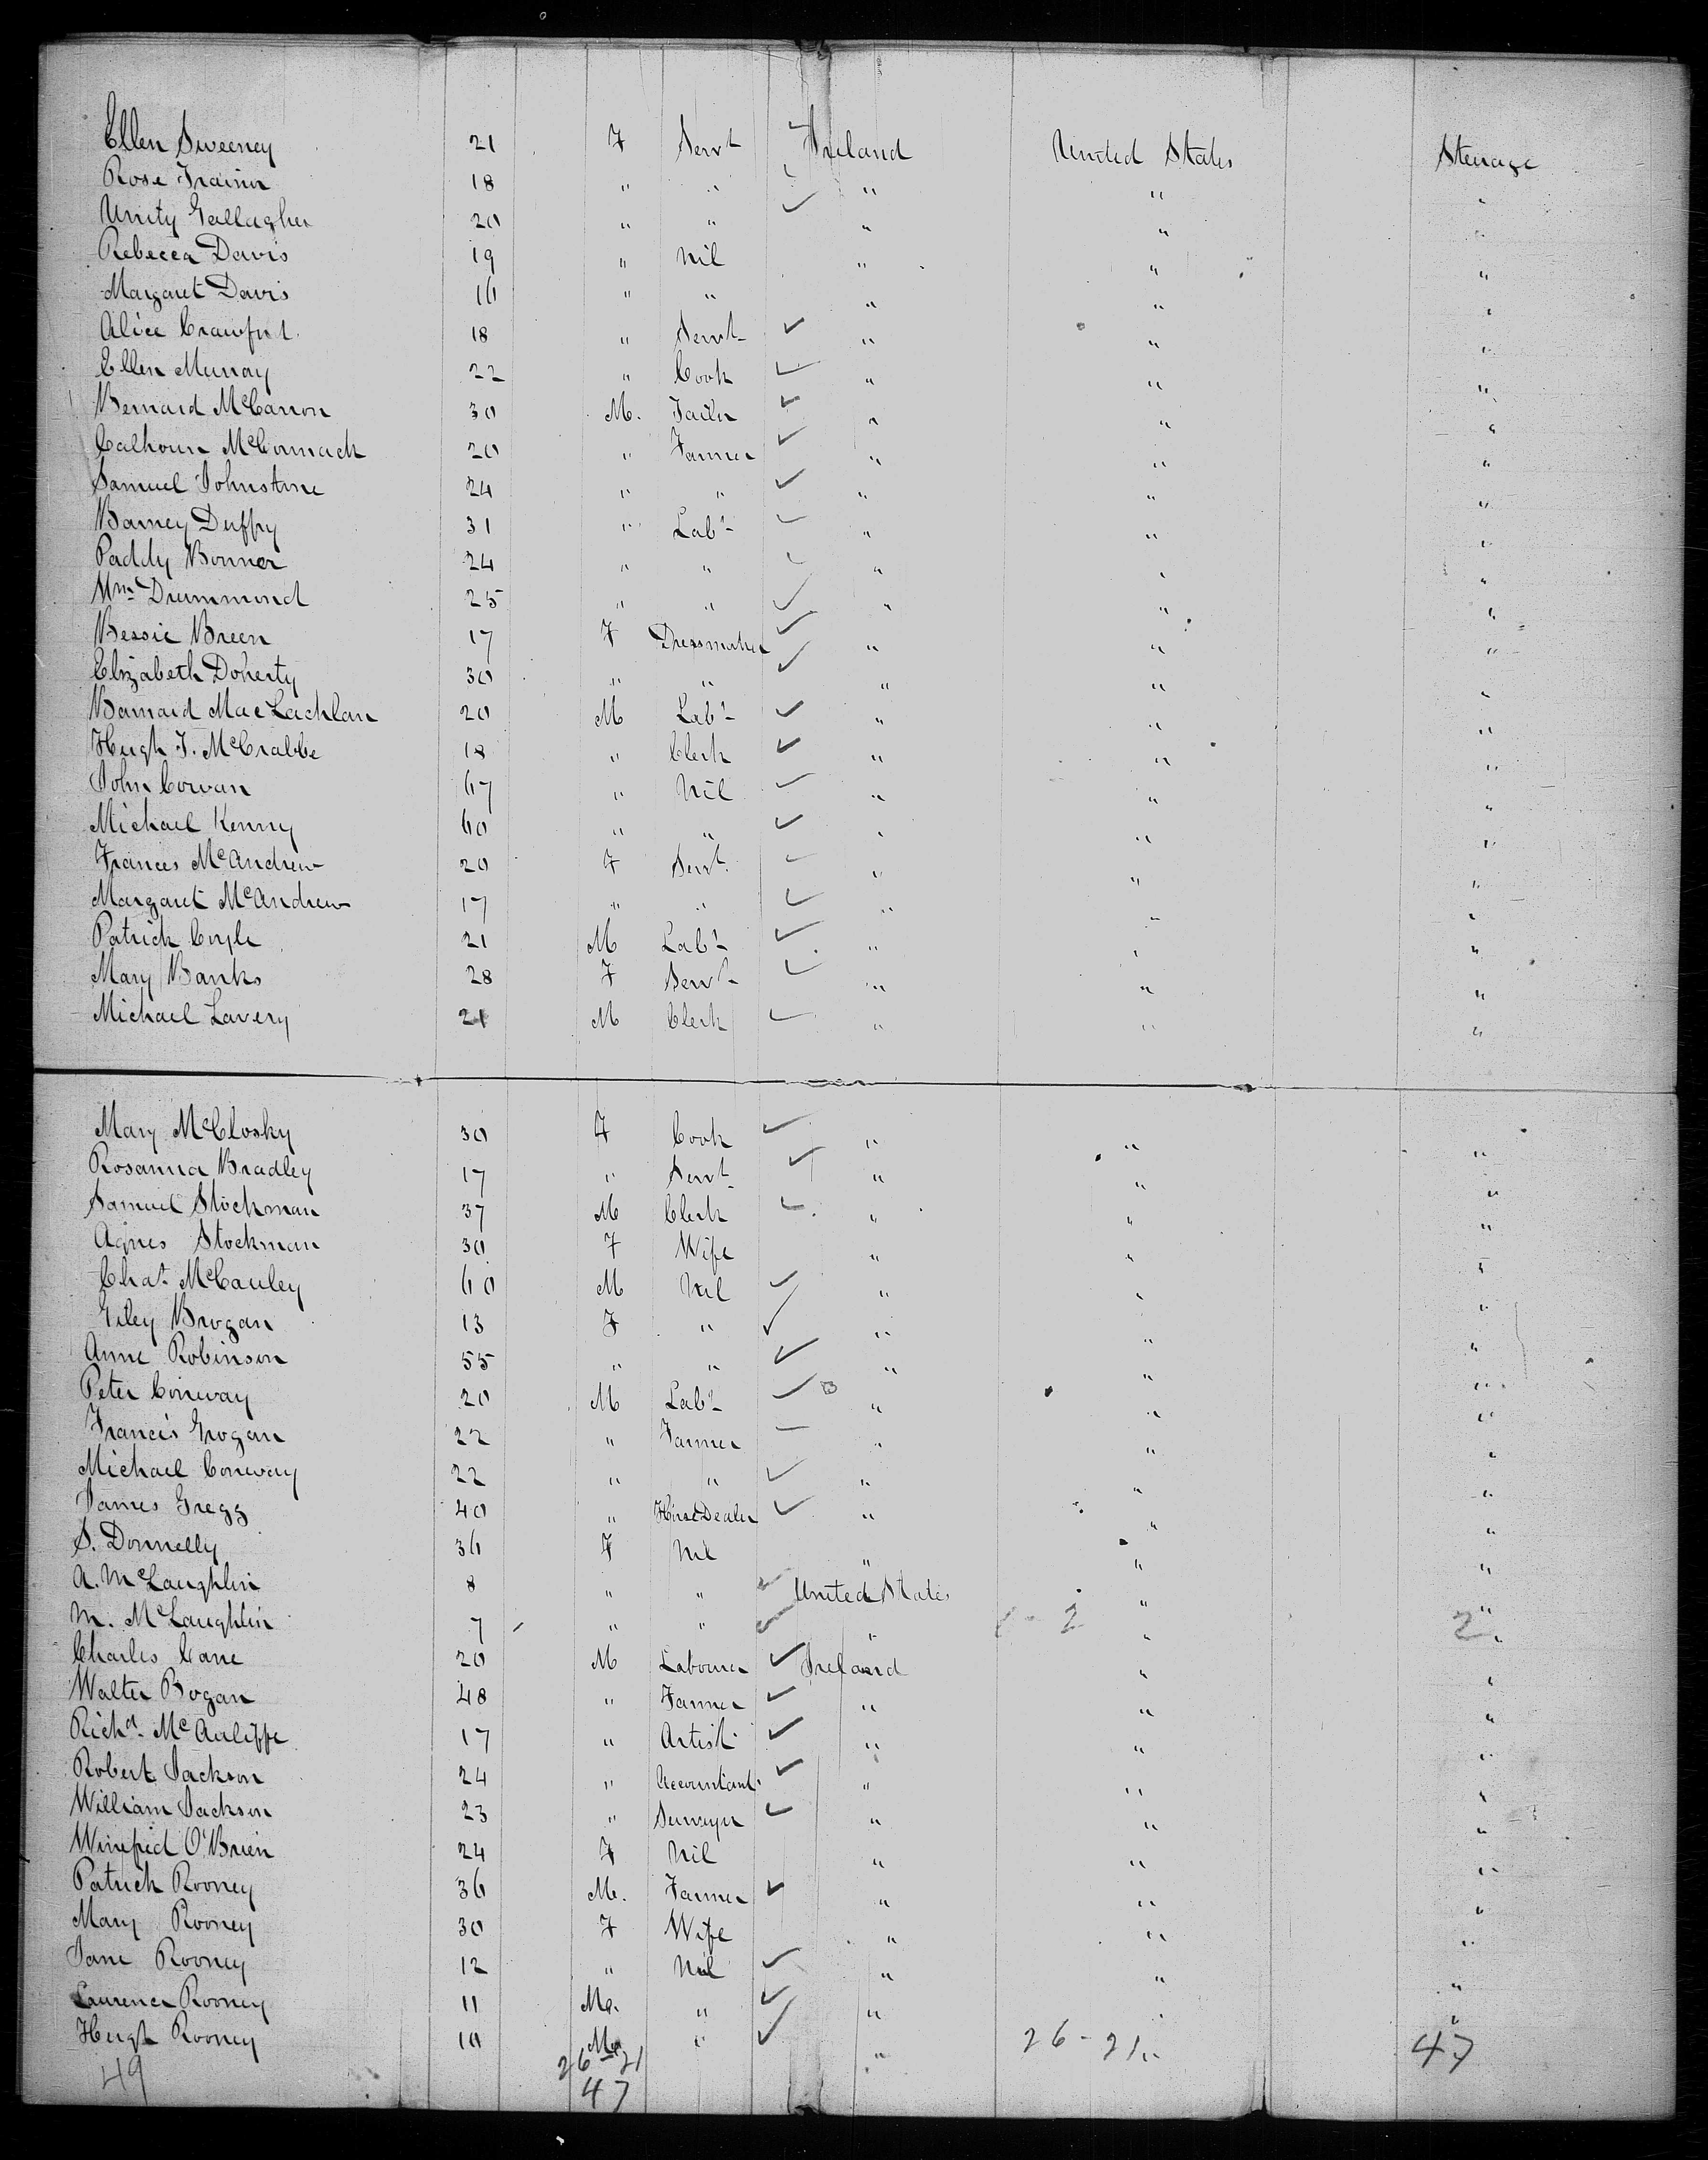 Ellen Sweeney 21 F Servt Ireland United States Steerage
Rose Trainor 18 " " " " "
Unity Gallagher 20 " " " " "
Rebecca Davis 19 " Nil " " "
Margaret Davis 16 " " " " "
Alice Crawford 18 " Servt " " "
Ellen Murray 22 " Cook " " "
Bernard McCarron 30 M. Tailor " " "
Calhoun McCormack 20 " Farmer " " "
Samuel Johnstone 24 " " " " "
Barney Duffy 31 " Labr " " "
Paddy Bonner 24 " " " " "
Wm Drummond 25 " " " " "
Bessie Breen 17 F Dressmaker " " "
Elizabeth Doherty 30 " " " " "
Barnard MacLachlan 20 M Labr " " "
Hugh J. McCrabbe 18 " Clerk " " "
John Cowan 67 " Nil " " "
Michael Kenny 60 " " " " "
Frances McAndrew 20 F Servt " " "
Margaret McAndrew 17 " " " " "
Patrick Coyle 21 M Labr " " "
Mary Banks 28 F Servt " " "
Michael Lavery 21 M Clerk " " "
Mary McClosky 30 F Cook " " "
Rosanna Bradley 17 " Servt " " "
Samuel Stockman 37 M Clerk " " "
Agnes Stockman 30 F Wife " " "
Chas McCauley 60 M Nil " " "
Giley Brogan 13 F " " " "
Anne Robinson 55 " " " " "
Peter Conway 20 M Labr " " "
Francis Grogan 22 " Farmer " " "
Michael Conway 22 " " " " "
James Gregg 40 " Horse Dealer " " "
S. Donnelly 36 F Nil " " "
A. McLaughlin 8 " " United States " "
M. McLaughlin 7 " " " 2 " 2 "
Charles Cane 20 M Labourer Ireland " "
Walter Bogan 48 " Farmer " " "
Richd McAuliffe 17 " Artist " " "
Robert Jackson 24 " Accountant " " "
William Jackson 23 " Surveyor " " "
Winifrid O'Brien 24 F Nil " " "
Patrick Rooney 36 M. Farmer " " "
Mary Rooney 30 F Wife " " "
Jane Rooney 12 " Nil " " "
Laurence Rooney 11 M. " " " "
Hugh Rooney 10 M " " " "
26-21 26-21 47
49 47